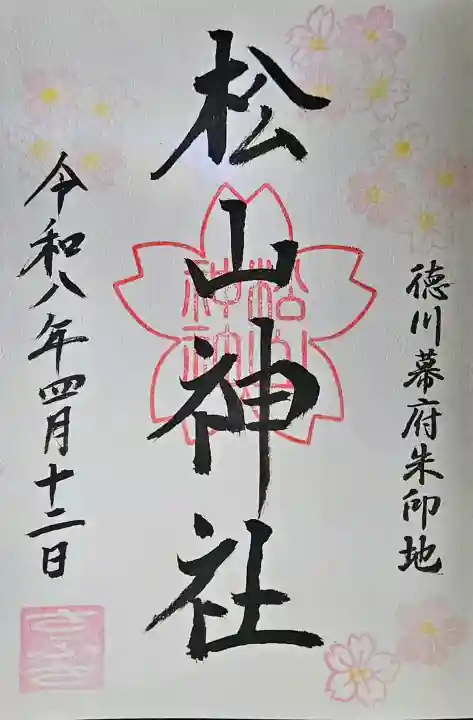 徳川幕府朱印地
松山神社
令和八年四月十二日